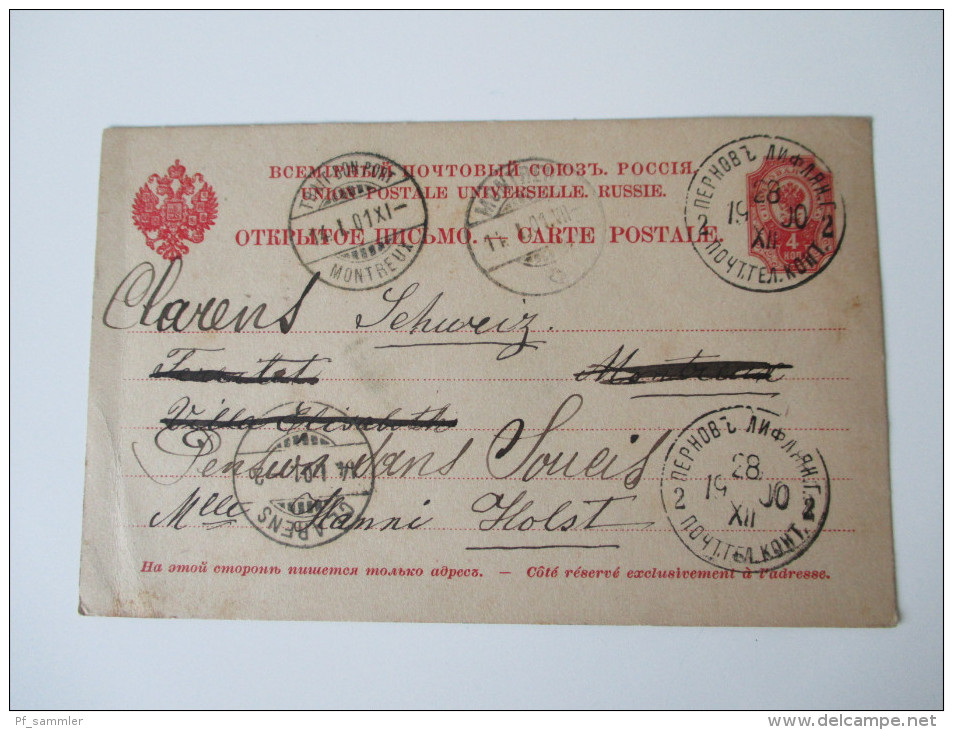 ВСЕМІРНЫЙ ПОЧТОВЫЙ СОЮЗЪ. РОССІЯ.
UNION POSTALE UNIVERSELLE. RUSSIE.
ОТКРЫТОЕ ПИСЬМО. — CARTE POSTALE.
MONTREUX
14. I. 01 XI-
MONTREUX
14. I. 01
ПЕРНОВЪ ЛИФЛЯН. Г.
28
19 00
XII
2 2
ПОЧТ. ТЕЛ. КОНТ.
4
КОП
Clarens Schweiz.
Montreux
Villa Elisabeth
Pension dans Soucis
Mlle Hanni Holst
CLARENS
ПЕРНОВЪ ЛИФЛЯН. Г.
28
19 00
XII
2 2
ПОЧТ. ТЕЛ. КОНТ.
На этой сторонѣ пишется только адресъ. — Côté réservé exclusivement à l'adresse.
Pf_sammler
delcampe.net